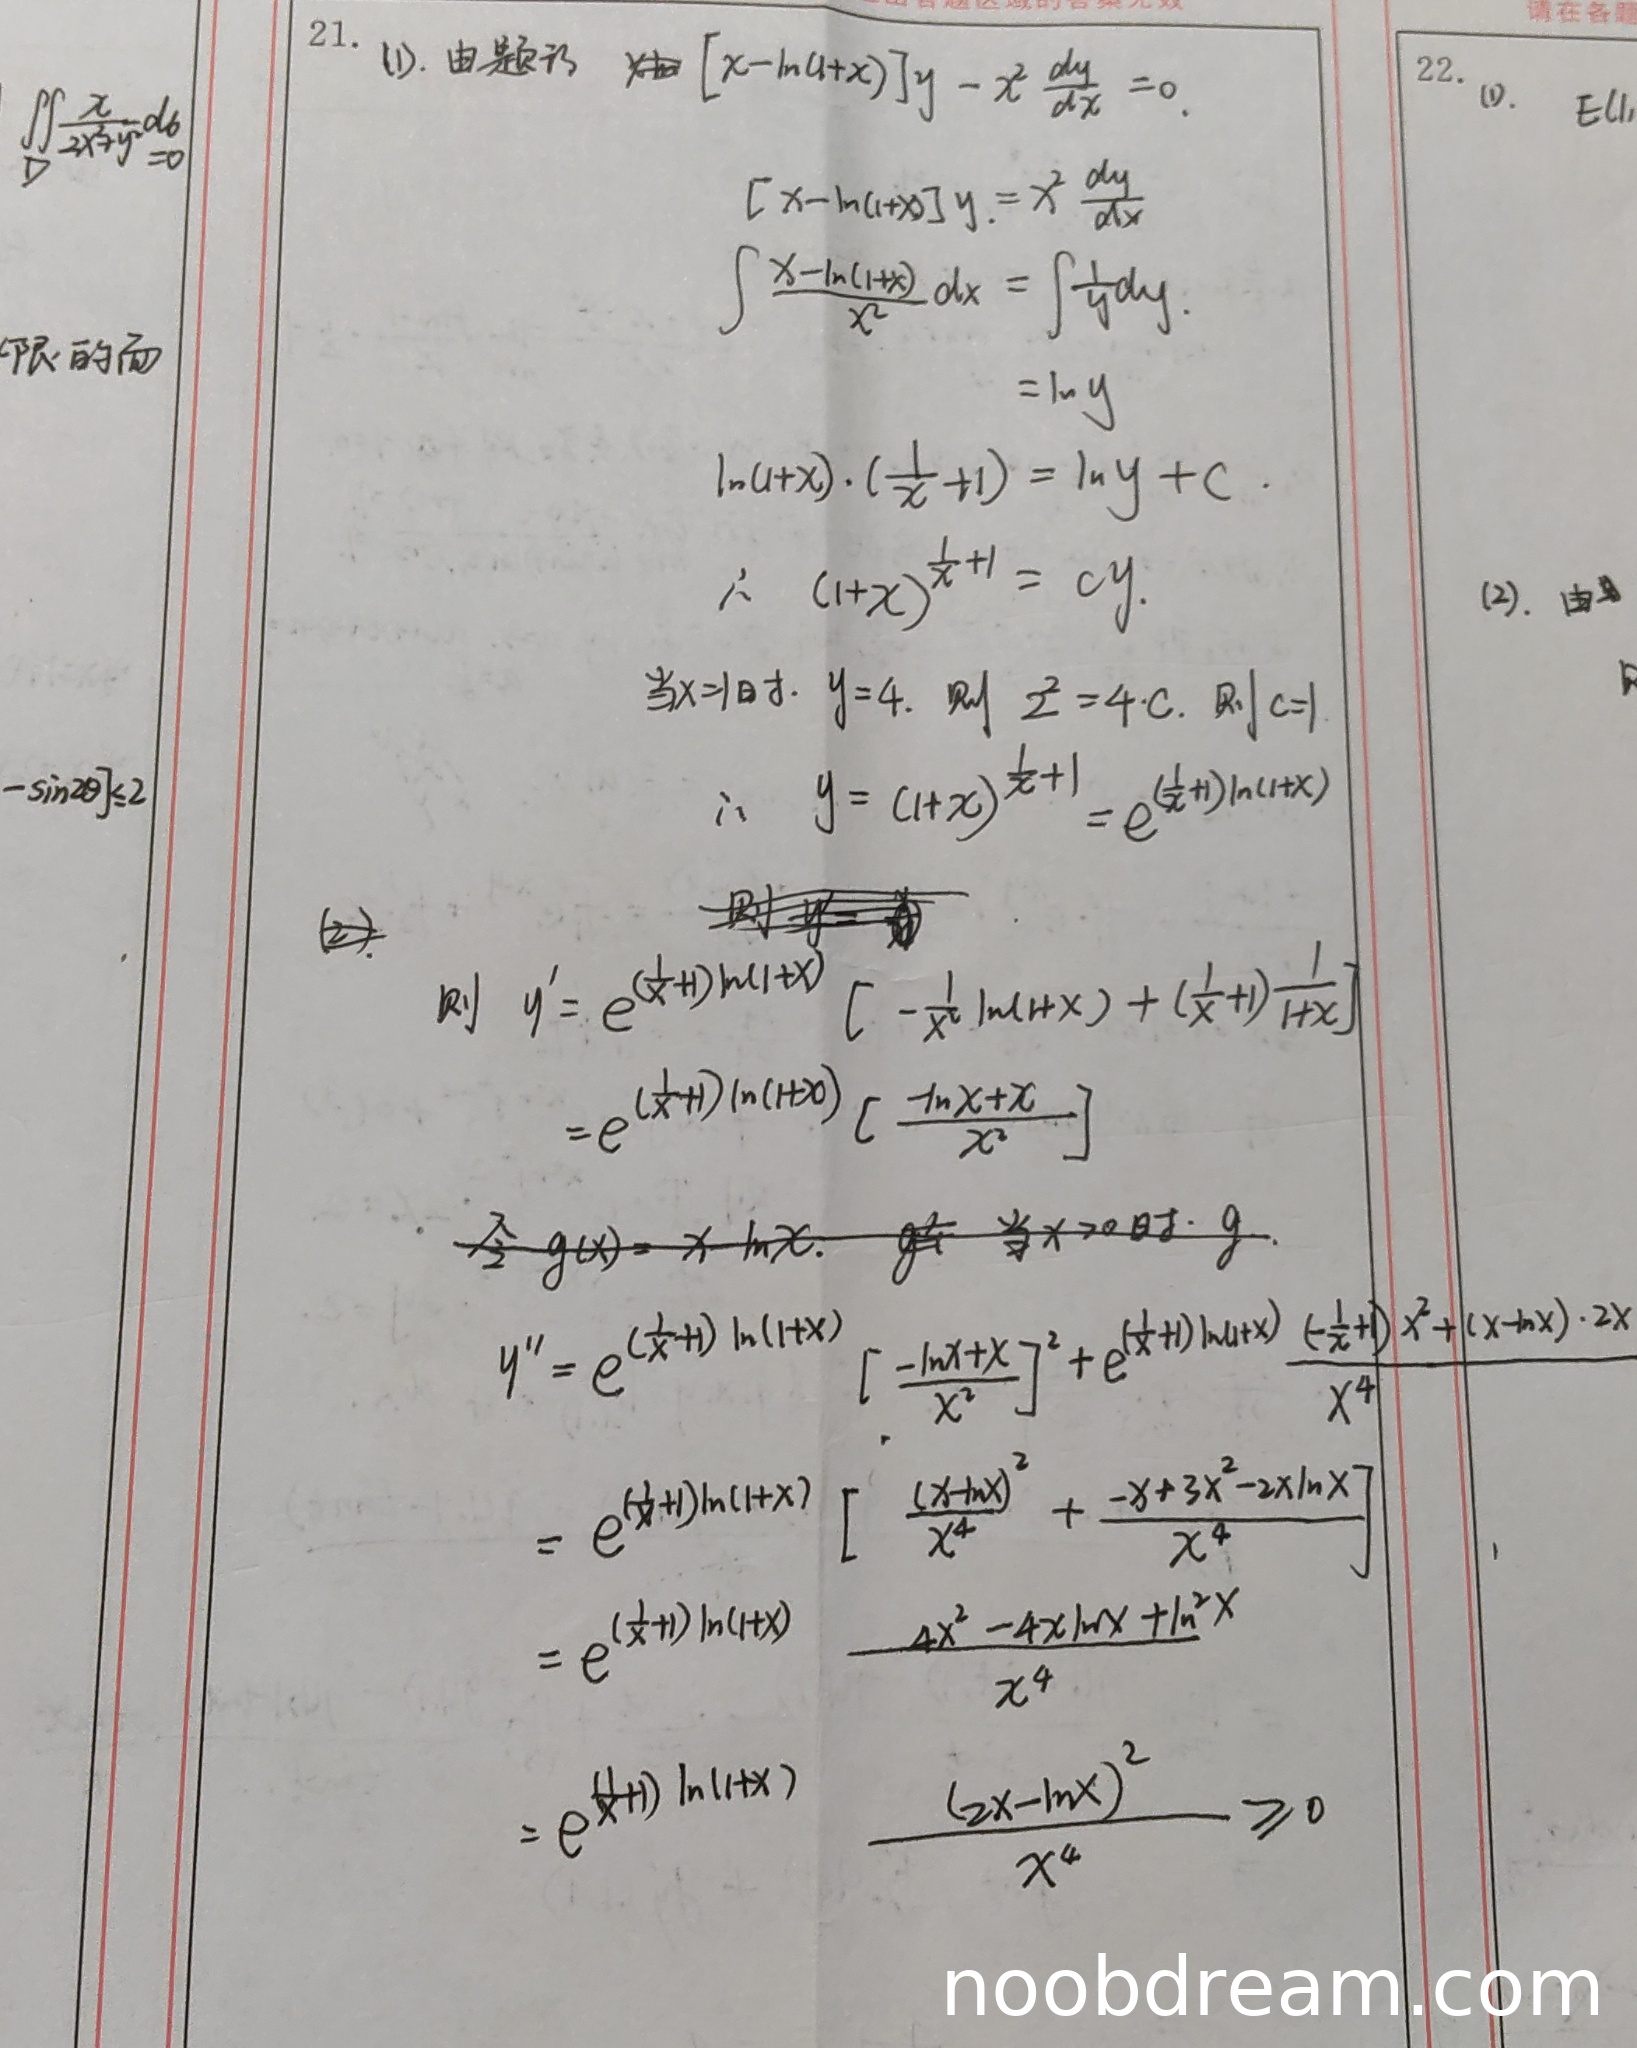 出答题区域的答案无效
请在各题
21. (1). 由题设 [x-ln(1+x)]y - x² dy/dx = 0.
[x-ln(1+x)] y. = x² dy/dx
∫ (x-ln(1+x))/x² dx = ∫ 1/y dy.
= ln y
ln(1+x)·(1/x +1) = ln y + C.
∴ (1+x)^(1/x +1) = cy.
当x=1时. y=4. 则 2²=4·C. 则 C=1
∴ y = (1+x)^(1/x +1) = e^((1/x +1)ln(1+x))
(2).
则 y' =
则 y' = e^((1/x +1)ln(1+x)) [ -1/x² ln(1+x) + (1/x +1) 1/(1+x) ]
= e^((1/x +1)ln(1+x)) [ (-lnx+x)/x² ]
令 g(x) = x-lnx. 当x>0时. g.
y'' = e^((1/x +1)ln(1+x)) [ (-lnx+x)/x² ]² + e^((1/x +1)ln(1+x)) ((-1/x +1)x² + (x-lnx)·2x)/x⁴
= e^((1/x +1)ln(1+x)) [ (x-lnx)²/x⁴ + (-x+3x²-2xlnx)/x⁴ ]
= e^((1/x +1)ln(1+x)) (4x²-4xlnx+ln²x)/x⁴
= e^((1/x +1)ln(1+x)) (2x-lnx)²/x⁴ ≥ 0
∬_D x/(2x²+y²) dσ
=0
限的面
-sin2θ]≤2
22. (1). E(1,
(2). 由
noobdream.com